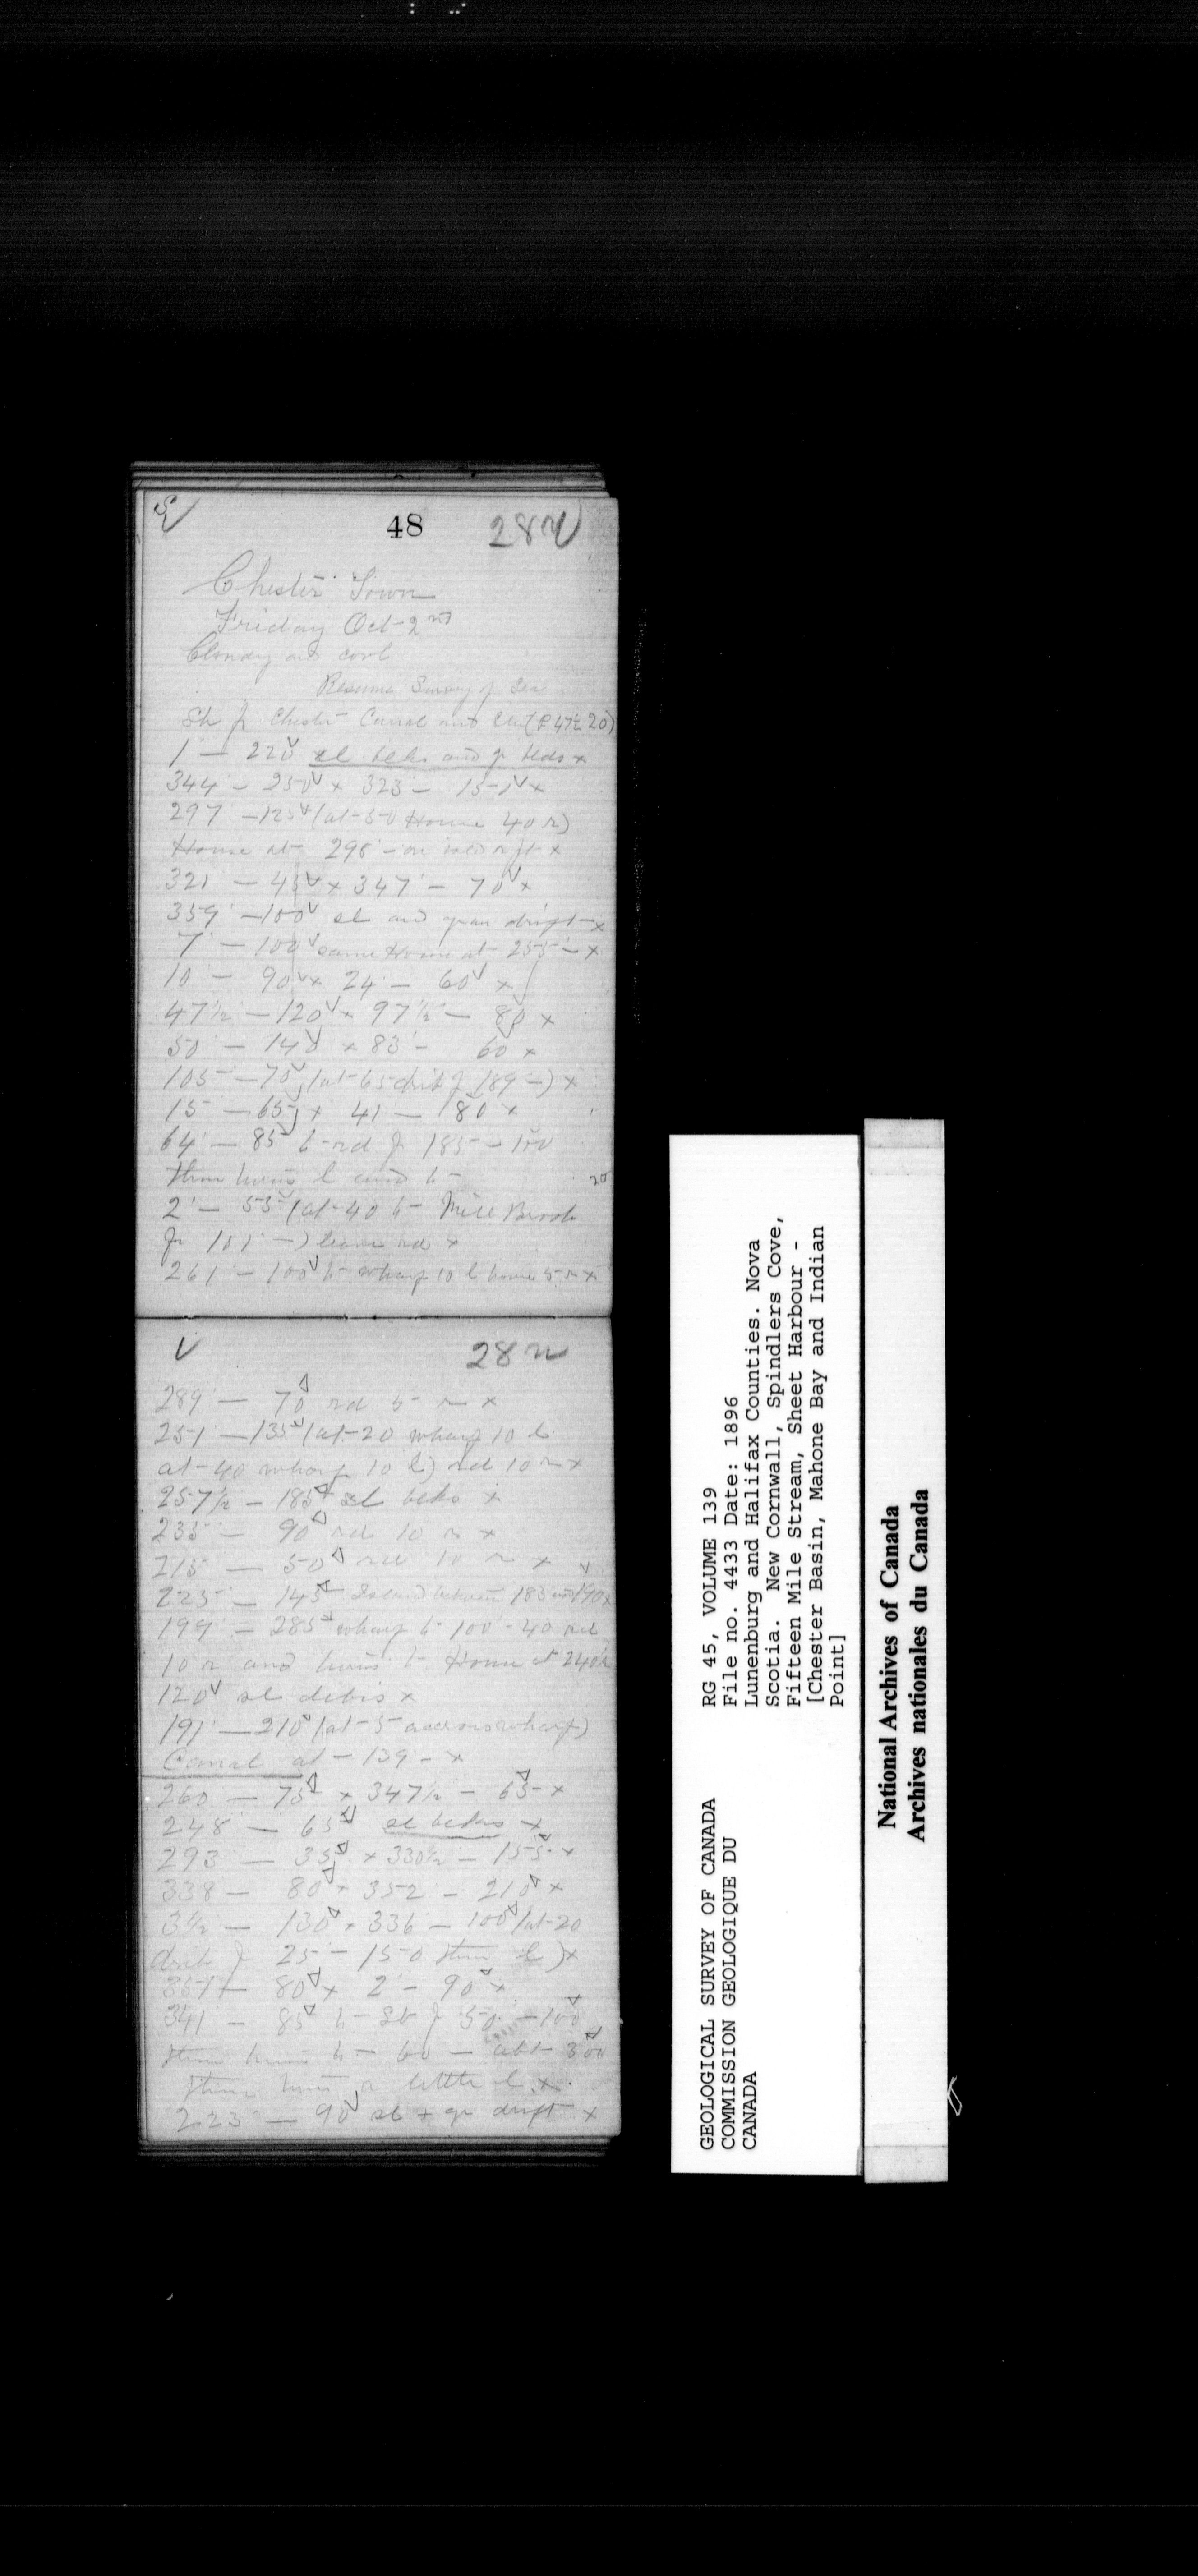 48
28 N
Chester Town
Friday Oct 2nd
Cloudy and cool
Resume Survey of
Chester Canal and (P 47½ 20)
1 — 220 sl belts and beds x
344 — 250 x 323 — 150 x
297 — 125 (at 50 House 40 r)
House at 295 — on x
321 — 45 x 347 — 70 x
359 — 100 sl and drift x
7 — 100 same House at 255 — x
10 — 90 x 24 — 60 x
47½ — 120 x 97½ — 80 x
50 — 140 x 83 — 60 x
105 — 70 (at 65 189 —) x
15 — 65 x 41 — 180 x
64 — 85 rd fr 185 — 100
then turns l and
20
2 — 55 (at 40 Mill Brook
fr 151 —) leave rd x
261 — 100 wharf 10 l house 5 r x
28 N
289 — 70 rd 5 r x
251 — 135 (at 20 wharf 10 l
at 40 wharf 10 l) rd 10 r x
257½ — 185 sl x
235 — 90 rd 10 r x
215 — 50 rd 10 r x
225 — 145 Island between 183 and 190 x
199 — 285 wharf 100 — 40 rd
10 r and turns House at 240
120 sl debris x
191 — 210 (at 5 across wharf)
Canal at 139 — x
260 — 75 x 347½ — 65 x
248 — 65 sl x
293 — 35 x 330½ — 155 x
338 — 80 x 352 — 210 x
3½ — 130 x 336 — 100 (at 20
25 — 150 then l) x
351 — 80 x 2 — 90 x
341 — 85 fr 50 — 100
then turns 60 — abt 300
then turns a little l x
223 — 90 sl + gr drift x
GEOLOGICAL SURVEY OF CANADA
COMMISSION GEOLOGIQUE DU
CANADA
RG 45, VOLUME 139
File no. 4433 Date: 1896
Lunenburg and Halifax Counties. Nova
Scotia. New Cornwall, Spindlers Cove,
Fifteen Mile Stream, Sheet Harbour -
[Chester Basin, Mahone Bay and Indian
Point]
National Archives of Canada
Archives nationales du Canada